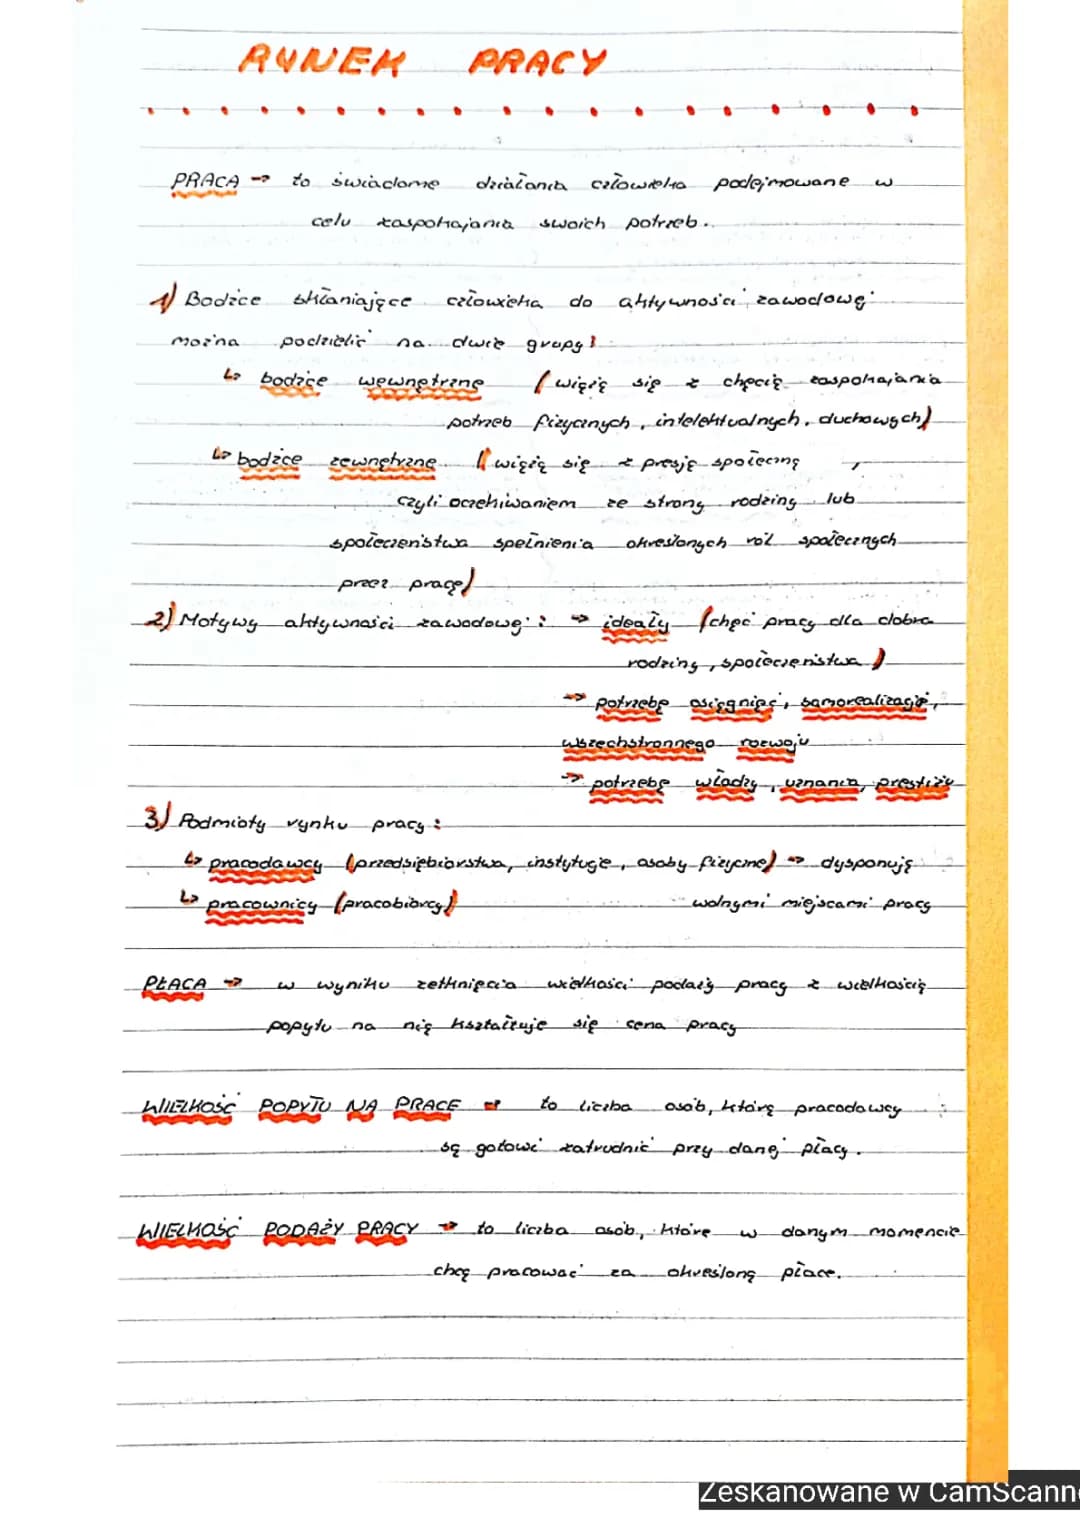 RYNEK PRACY
PRACA → to świadome działania człowieka podejmowane w
celu zaspokajania swoich potrzeb.
1) Bodźce skłaniające człowieka do aktywności zawodowej
można podzielić na dwie grupy:
↳ bodźce wewnętrzne (wiążą się z chęcią zaspokajania
potrzeb fizycznych, intelektualnych, duchowych)
↳ bodźce zewnętrzne (wiążą się z presją społeczną,
czyli oczekiwaniem ze strony rodziny lub
społeczeństwa spełnienia określonych ról społecznych
przez pracę)
2) Motywy aktywności zawodowej: → ideały (chęć pracy dla dobra
rodziny, społeczeństwa)
→ potrzebę osiągnięć, samorealizacji,
wszechstronnego rozwoju
→ potrzebę władzy, uznania, prestiżu
3) Podmioty rynku pracy:
↳ pracodawcy (przedsiębiorstwa, instytucje, osoby fizyczne) → dysponują
↳ pracownicy (pracobiorcy) wolnymi miejscami pracy
PŁACA → w wyniku zetknięcia wielkości podaży pracy z wielkością
popytu na nią kształtuje się cena pracy
WIELKOŚĆ POPYTU NA PRACE → to liczba osób, którą pracodawcy
są gotowi zatrudnić przy danej płacy.
WIELKOŚĆ PODAŻY PRACY → to liczba osób, które w danym momencie
chcą pracować za określoną płace.
Zeskanowane w CamScann